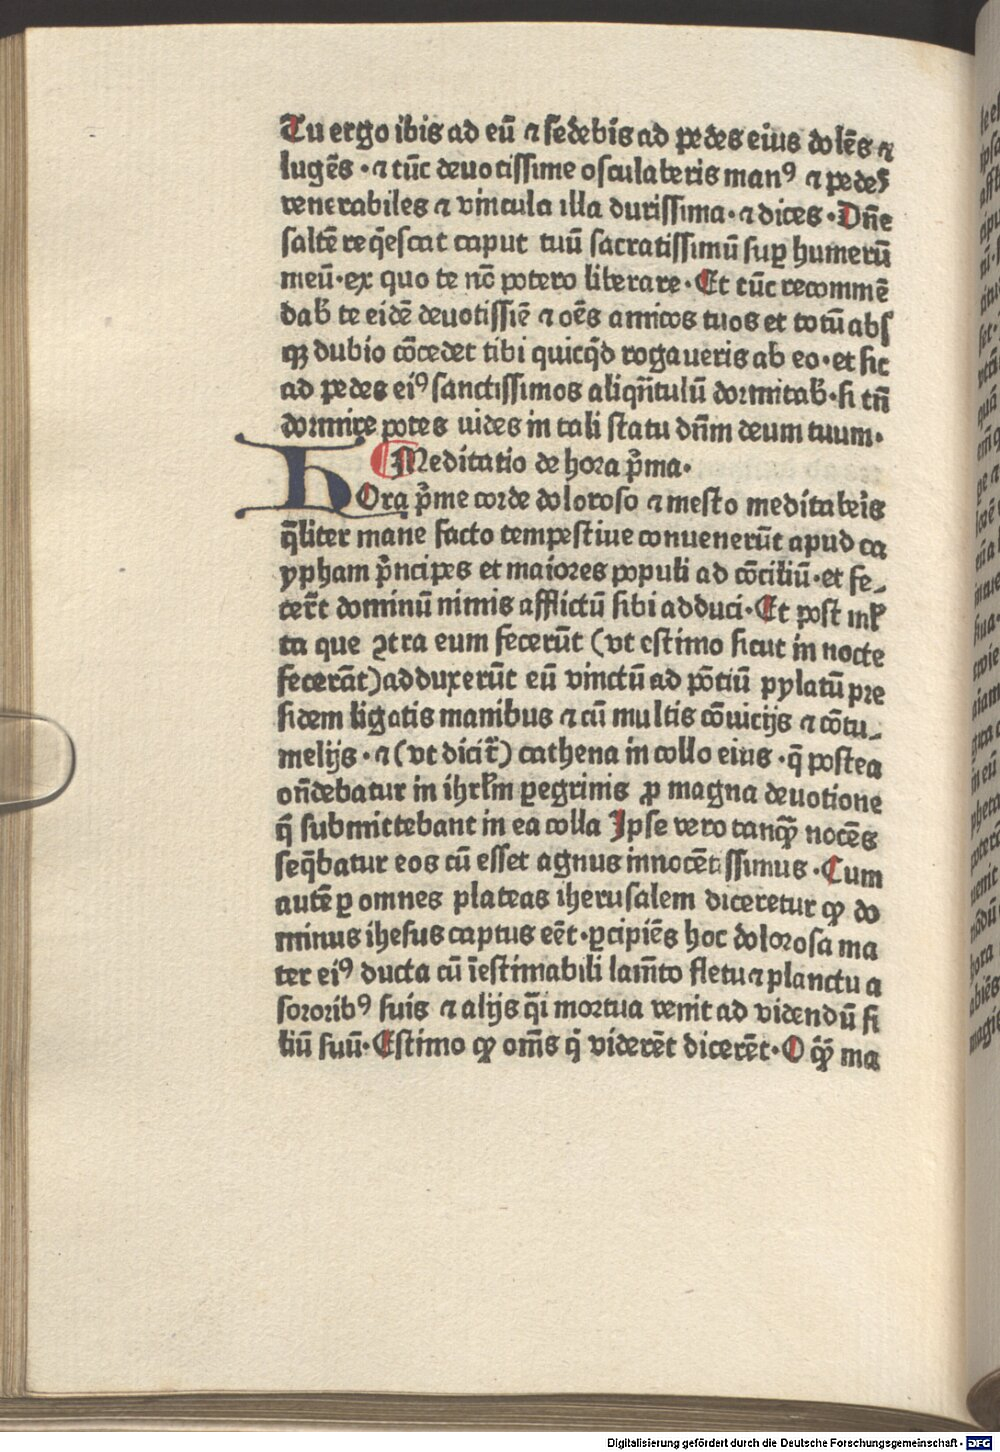 Tu ergo ibis ad eū ⁊ sedebis ad pedes eius dolēs ⁊
lugēs · ⁊ tūc deuotissime osculaberis manꝰ ⁊ pedes
venerabiles ⁊ vincula illa durissima · ⁊ dices · Dn̄e
saltē req̄escat caput tuū sacratissimū suꝑ humerū
meū · ex quo te nō potero liberare · Et tūc recommē
dab̓ te eidē deuotissīe ⁊ oēs amicos tuos et totū abs
qꝫ dubio cōcedet tibi quicq̄d rogaueris ab eo · et sic
ad pedes eiꝰ sanctissimos aliqn̄tulū dormitab̓ · si tn̄
dormire potes uides in tali statu dn̄m deum tuum ·
Meditatio de hora p̄ma ·
HOra p̄me corde doloroso ⁊ mesto meditaber̓s
q̄liter mane facto tempestiue conuenerūt apud ca
ypham p̄ncipes et maiores populi ad cōciliū · et fe⸗
cer̄t dominū nimis afflictū sibi adduci · Et post ml̓
ta que ꝯtra eum fecerūt (vt estimo sicut in nocte
fecerāt) adduxerūt eū vinctū ad pōtiū pylatū pre
sidem ligatis manibus ⁊ cū multis cōuicijs ⁊ cōtu⸗
melijs · ⁊ (vt dicit̄) cathena in collo eius · q̄ postea
on̄debatur in ihrl̄m ꝑegrinis ꝓ magna deuotione
q̄ submittebant in ea colla Ipse vero tanqꝫ̄ nocēs
seq̄batur eos cū esset agnus innocētissimus · Cum
autē ꝑ omnes plateas iherusalem diceretur ꝙ do
minus ihesus captus eēt · ꝑcipiēs hoc dolorosa ma
ter eiꝰ ducta cū īestimabili lam̄to fletu ⁊ planctu a
sororibꝰ suis ⁊ alijs q̄i mortua venit ad videndū fi
liū suū · Estimo ꝙ om̄s q̇ viderēt dicerēt · O qꝫ̄ ma
Digitalisierung gefördert durch die Deutsche Forschungsgemeinschaft - DFG